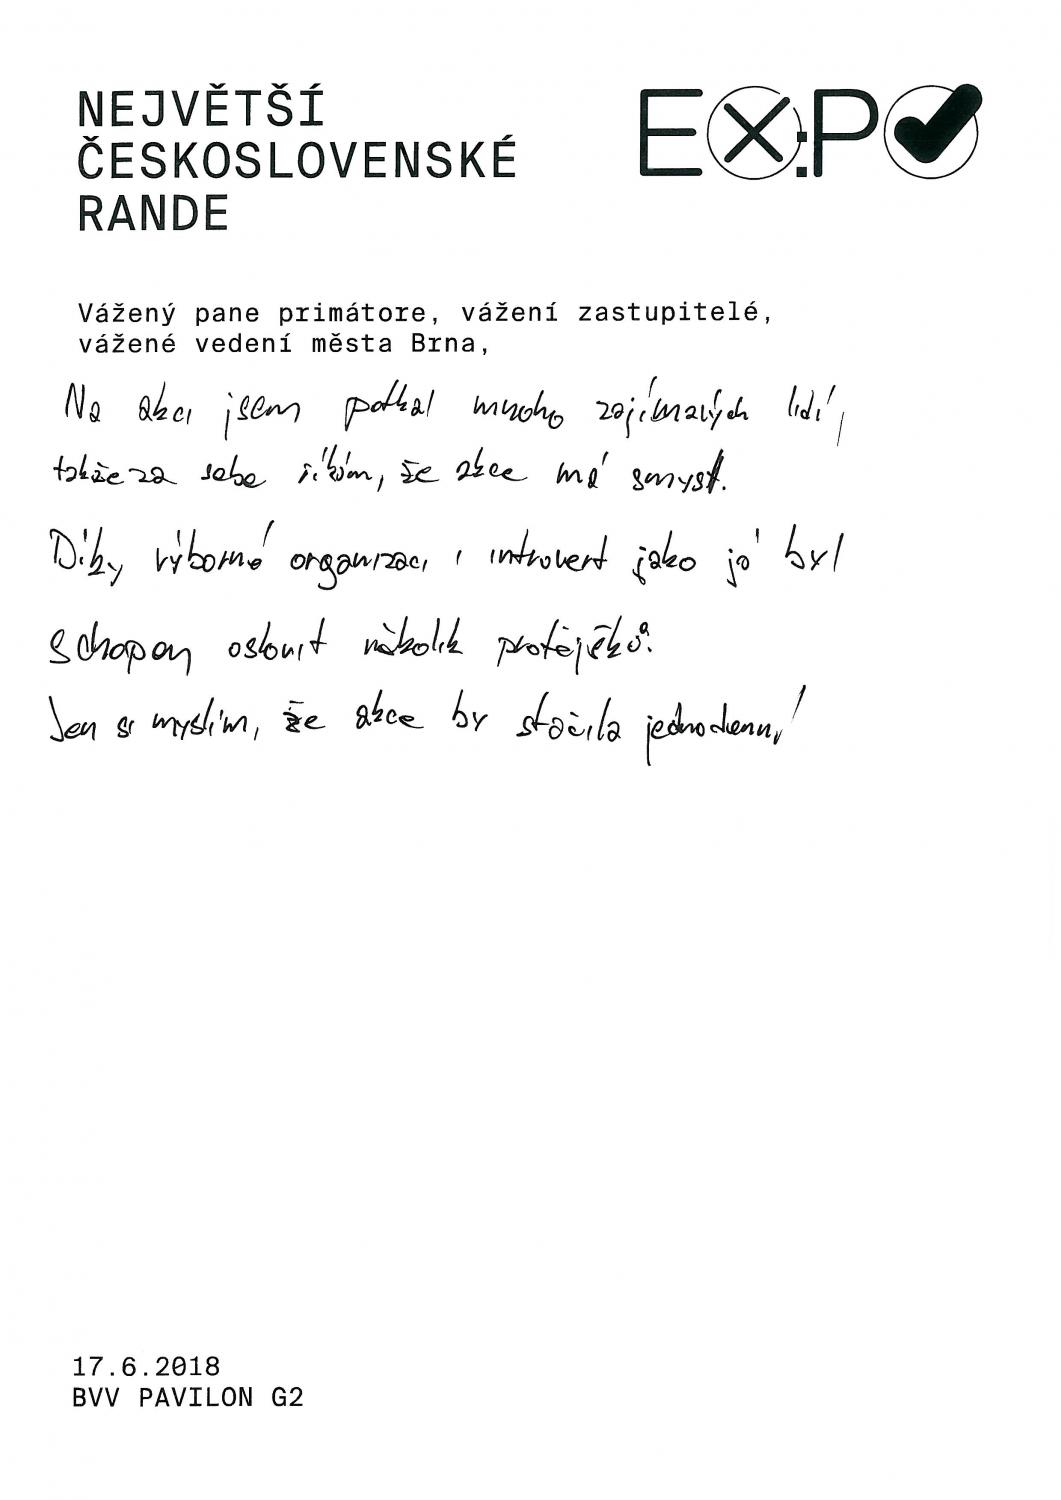 NEJVĚTŠÍ
ČESKOSLOVENSKÉ
RANDE
EX:PO
Vážený pane primátore, vážení zastupitelé,
vážené vedení města Brna,
Na akci jsem potkal mnoho zajímavých lidí,
takže za sebe říkám, že akce má smysl.
Díky výborné organizaci i introvert jako já byl
schopen oslovit několik protějšků.
Jen si myslím, že akce by stačila jednodenní
17.6.2018
BVV PAVILON G2